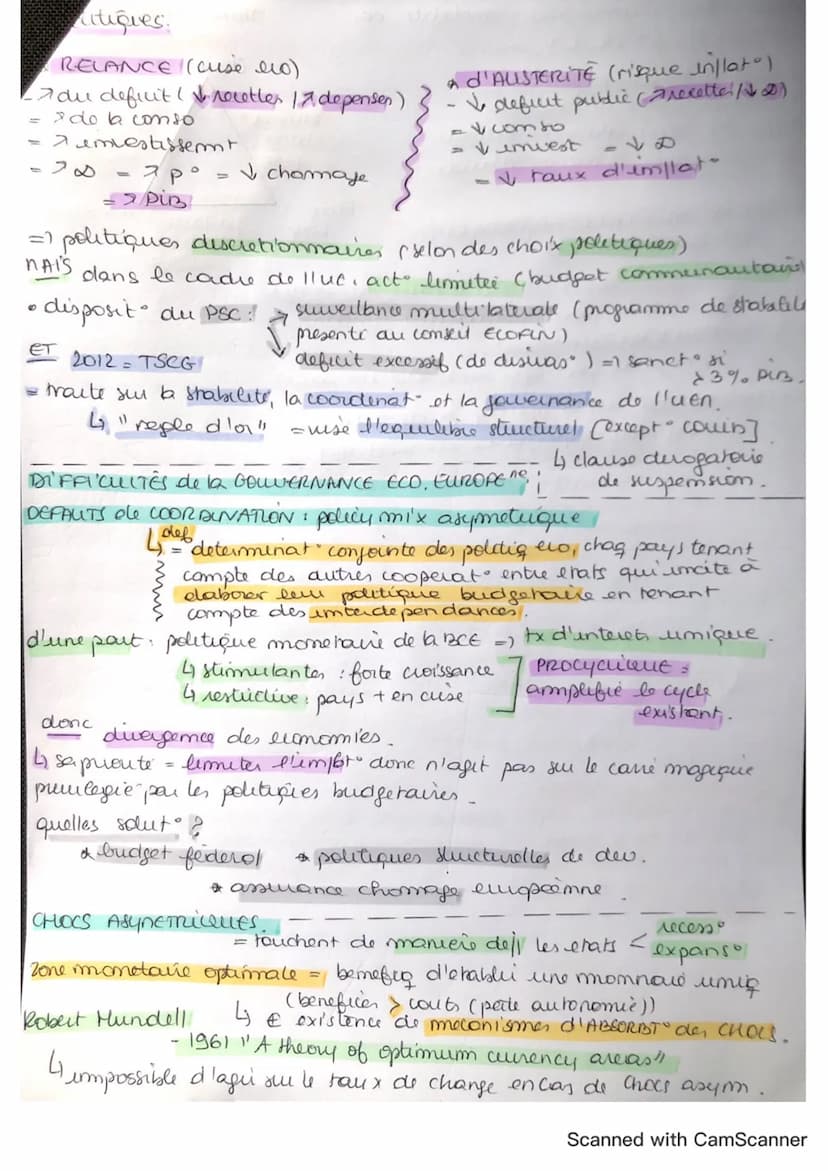 itiques.
RELANCE (crise eco)
- ↗ du deficit (↓ recettes / ↗ depenses)
= ↗ de la conso
= ↗ investissemnt
= ↗ ∞ = ↗ p° = ↓ chomage
= ↗ PIB
* d'AUSTERITÉ (risque inflat°)
- ↓ deficit public (↗ recettes / ↓ ∞)
= ↓ conso
= ↓ invest = ↓ ∞
= ↓ taux d'inflat°
=> politiques discretionnaires (selon des choix politiques)
MAIS dans le cadre de l'UE, act° limitée (budget communautaire
• disposit° du PSC: → surveillance multilaterale (programme de stabilité
presente au conseil ECOFIN)
↘ deficit excessif (de disuas°) => sanct° si
> 3% PIB.
ET 2012 = TSCG
= traite sur la stabilité, la coordinat° et la gouvernance de l'uem.
↳ "regle d'or" = vise l'equilibre structurel [except° covid]
↳ clause derogatoire
de suspension.
DIFFICULTÉS de la GOUVERNANCE ECO. EUROPE^ne:
DEFAUTS de COORDINATION : policy mix asymetrique
↳ def
= determinat° conjointe des politiq eco, chaq pays tenant
compte des autres cooperat° entre etats qui incite à
elaborer leur politique budgetaire en tenant
compte des interdependances.
d'une part : politique monetaire de la BCE => tx d'interets unique.
↳ stimulantes : forte croissance
↳ restrictive : pays + en crise
] PROCYCLIQUE =
amplifie le cycle
existant.
donc divergence des economies.
↳ sa priorité = limiter l'inflat° donc n'agit pas sur le carré magique
privilegie par les politiques budgetaires.
quelles solut° ?
* budget federal * politiques structurelles de dev.
* assurance chomage europeenne.
CHOCS ASYMETRIQUES.
= touchent de maniere de/| les etats < recess°
expans°
Zone monetaire optimale = benefiq d'etablir une monnaie uniq
(benefices > couts (perte autonomie))
Robert Mundell ↳ € existence de mecanismes d'ABSORBT° des CHOCS.
- 1961 "A theory of optimum currency areas"
↳ impossible d'agir sur le taux de change en cas de chocs asym.
Scanned with CamScanner